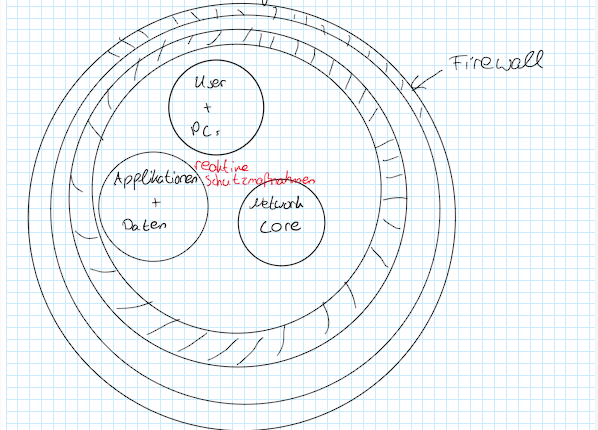 Firewall
User
+
PCs
reaktive
schutzmaßnahmen
Applikationen
+
Daten
Network
Core